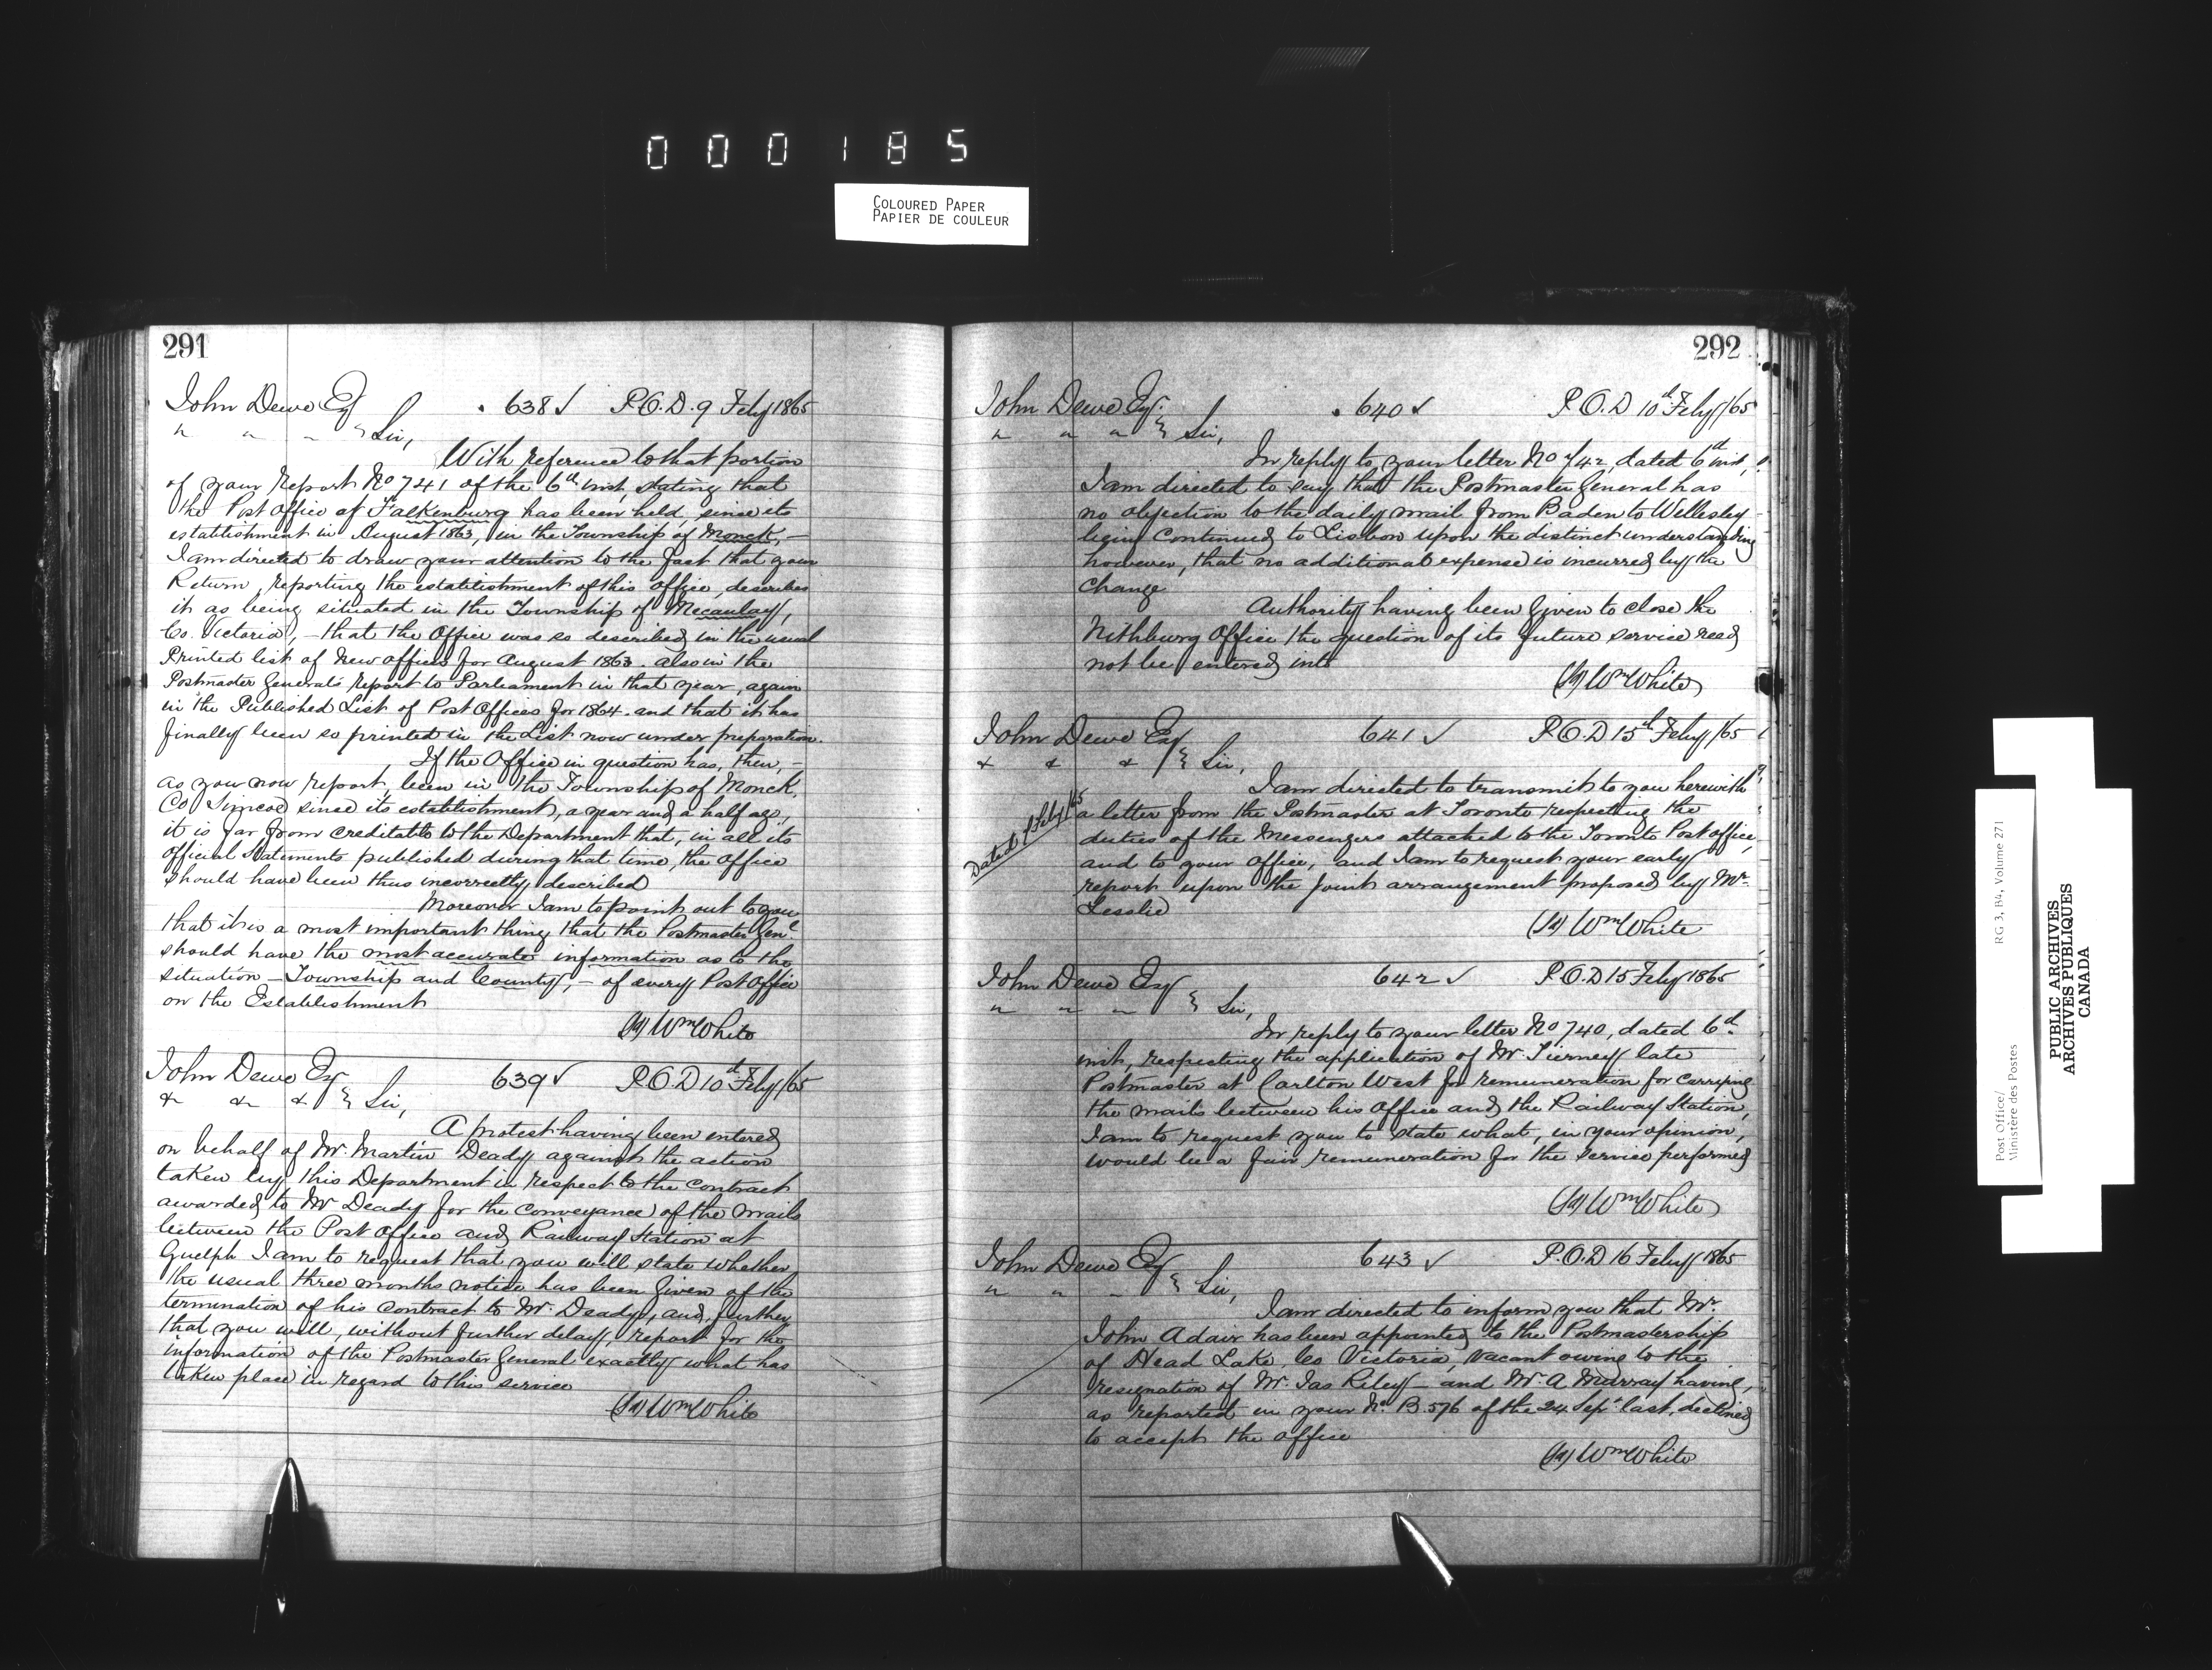 000185
COLOURED PAPER
PAPIER DE COULEUR
291
John Dewe Esq . 638 ✓ P.O.D. 9 Feby 1865
" " " } Sir,
With reference to that portion
of your Report No 741 of the 6th inst, stating that
the Post Office of Falkenburg has been held, since its
establishment in August 1863, in the Township of Monck, –
I am directed to draw your attention to the fact that your
Return, reporting the establishment of this office, describes
it as being situated in the Township of Mecaulay,
Co. Victoria, – that the Office was so described in the usual
Printed list of new offices for August 1863. also in the
Postmaster General's report to Parliament in that year, again
in the Published List of Post Offices for 1864. and that it has
finally been so printed in the List now under preparation.
If the Office in question has, then, –
as you now report, been in the Township of Monck,
Co Simcoe since its establishment, a year and a half ago,
it is far from creditable to the Department that, in all its
official statements published during that time, the office
should have been thus incorrectly described
Moreover I am to point out to you
that it is a most important thing that the Postmaster Genl
should have the most accurate information as to the
situation – Township and County, – of every Post Office
on the Establishment
(Sd) Wm White
John Dewe Esq 639 ✓ P.O.D 10th Feby /65
& & & } Sir,
A protest having been entered
on behalf of Mr. Martin Deady against the action
taken by this Department in respect to the contract
awarded to Mr Deady for the conveyance of the mails
between the Post Office and Railway Station at
Guelph I am to request that you will state whether
the usual three months notice has been given of the
termination of his contract to Mr. Deady, and, further
that you will, without further delay, report for the
information of the Postmaster General exactly what has
taken place in regard to this service
(Sd) Wm White
292
John Dewe Esq. . 640 ✓ P.O.D 10th Feby /65
" " " } Sir,
In reply to your letter No 742, dated 6th inst,
I am directed to say that the Postmaster General has
no objection to the daily mail from Baden to Wellesley
being continued to Lisbon upon the distinct understanding
however, that no additional expense is incurred by the
change
Authority having been given to close the
Nithburg Office the question of its future service need
not be entered into
(Sd) Wm White
John Dewe Esq 641 ✓ P.O.D 15th Feby /65
& & & } Sir,
I am directed to transmit to you herewith
Dated 1 Feby /65
a letter from the Postmaster at Toronto respecting the
duties of the Messengers attached to the Toronto Post office,
and to your office, and I am to request your early
report upon the joint arrangement proposed by Mr.
Lesslie
(Sd) Wm White
John Dewe Esq 642 ✓ P.O.D 15 Feby 1865
" " " } Sir,
In reply to your letter No 740, dated 6th
inst, respecting the application of Mr. Tierney late
Postmaster at Carlton West for remuneration for carrying
the mails between his Office and the Railway Station,
I am to request you to state what, in your opinion,
would be a fair remuneration for the service performed
(Sd) Wm White
John Dewe Esq 643 ✓ P.O.D 16 Feby 1865
" " " } Sir,
I am directed to inform you that Mr.
John Adair has been appointed to the Postmastership
of Head Lake, Co Victoria, vacant owing to the
resignation of Mr. Jas Riley – and Mr. A Murray having,
as reported in your No. B.576 of the 24 Sept last, declined
to accept the office
(Sd) Wm White
Post Office/ RG 3, B4, Volume 271
Ministère des Postes
PUBLIC ARCHIVES
ARCHIVES PUBLIQUES
CANADA